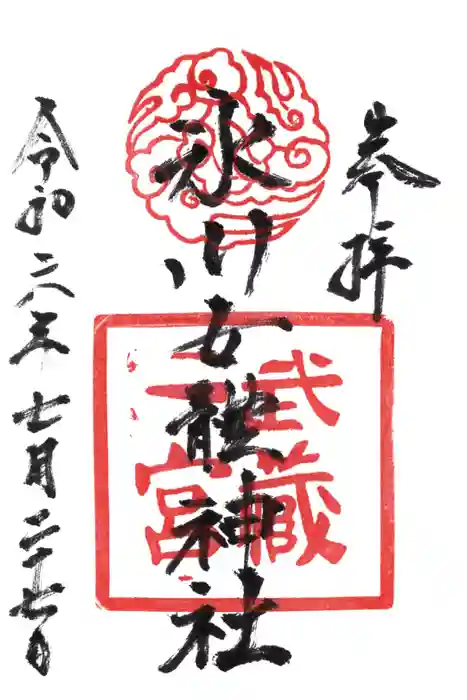 奉拝
氷川女體神社
武蔵
一宮
令和六年七月二十七日